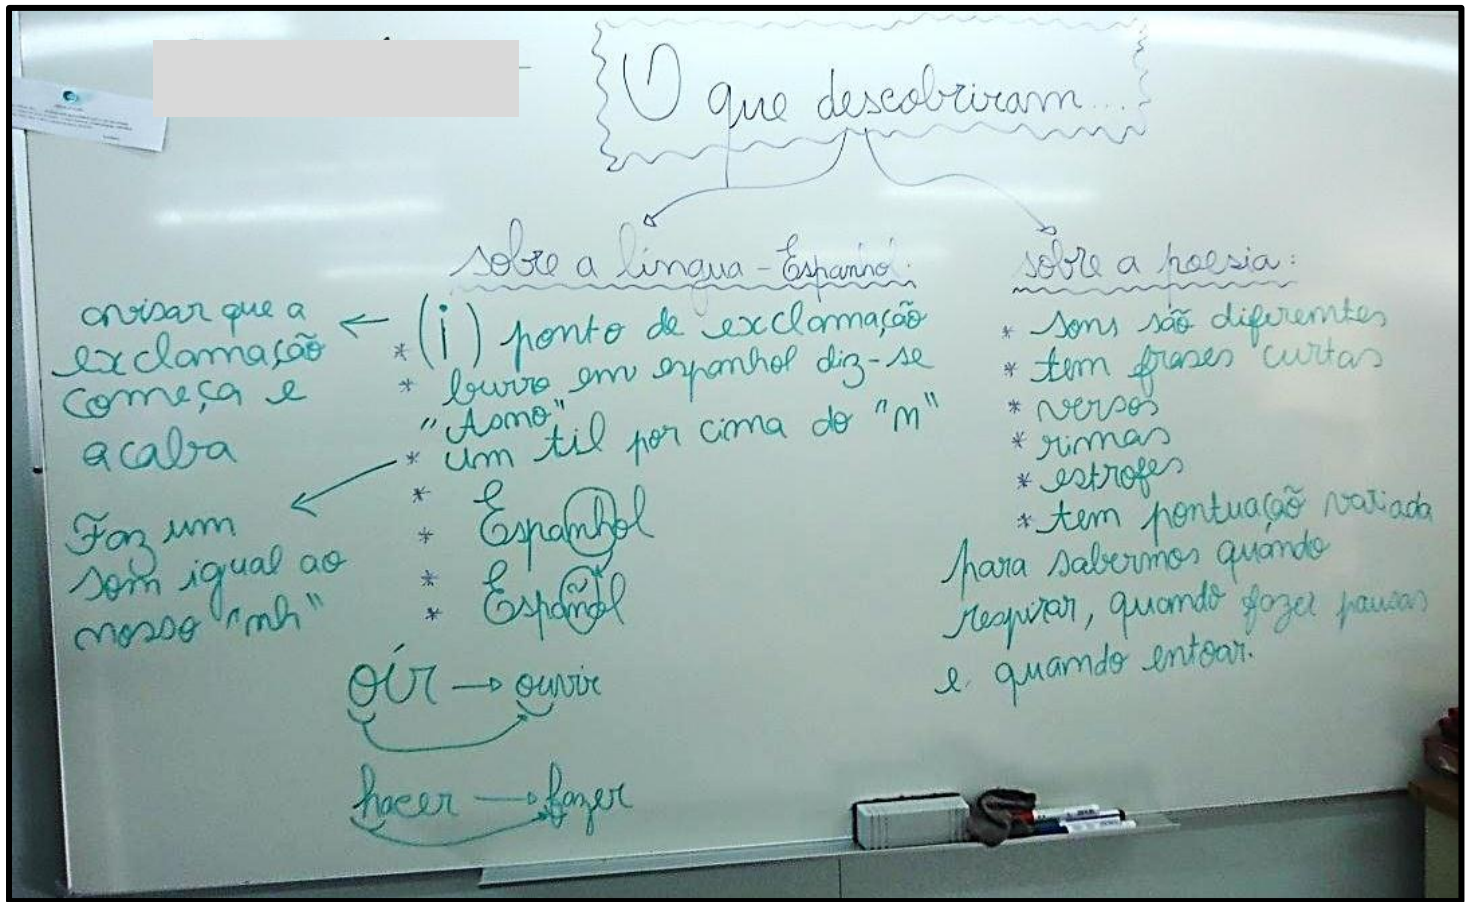 O que descobriram...
sobre a língua - Espanhol:
* (¡) ponto de exclamação
avisar que a
exclamação
começa e
acaba
* burro em espanhol diz-se
"Asno"
* um til por cima do "n"
Faz um
som igual ao
nosso "nh"
* Espanhol
* Español
oír → ouvir
hacer → fazer
sobre a poesia:
* sons são diferentes
* tem frases curtas
* versos
* rimas
* estrofes
* tem pontuação variada
para sabermos quando
respirar, quando fazer pausas
e quando entoar.